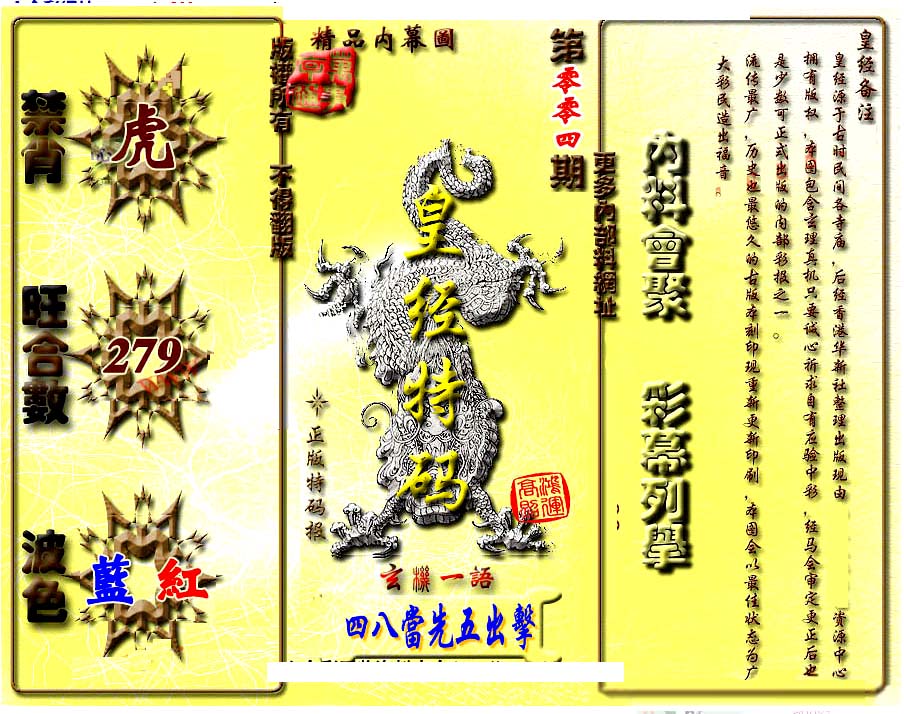 精品内幕圖
第零零四期
版權所有 不得翻版
更多内部料網址
禁肖
虎
旺合數
279
波色
藍 紅
皇经特码
正版特码报
鴻運高照
玄機一語
四八當先五出擊
内料會聚
彩幕列舉
皇经备注
皇经源于古时民间各寺庙，后经香港华新社整理出版现由 资源中心
拥有版权，本图包含玄理真机只要诚心祈求自有应验中彩，经马会审定更正后也
是少数可正式出版的内部彩报之一。
流传最广，历史也最悠久的古版本刻印现重新更新印刷，本图会以最佳状态为广
大彩民造出福音